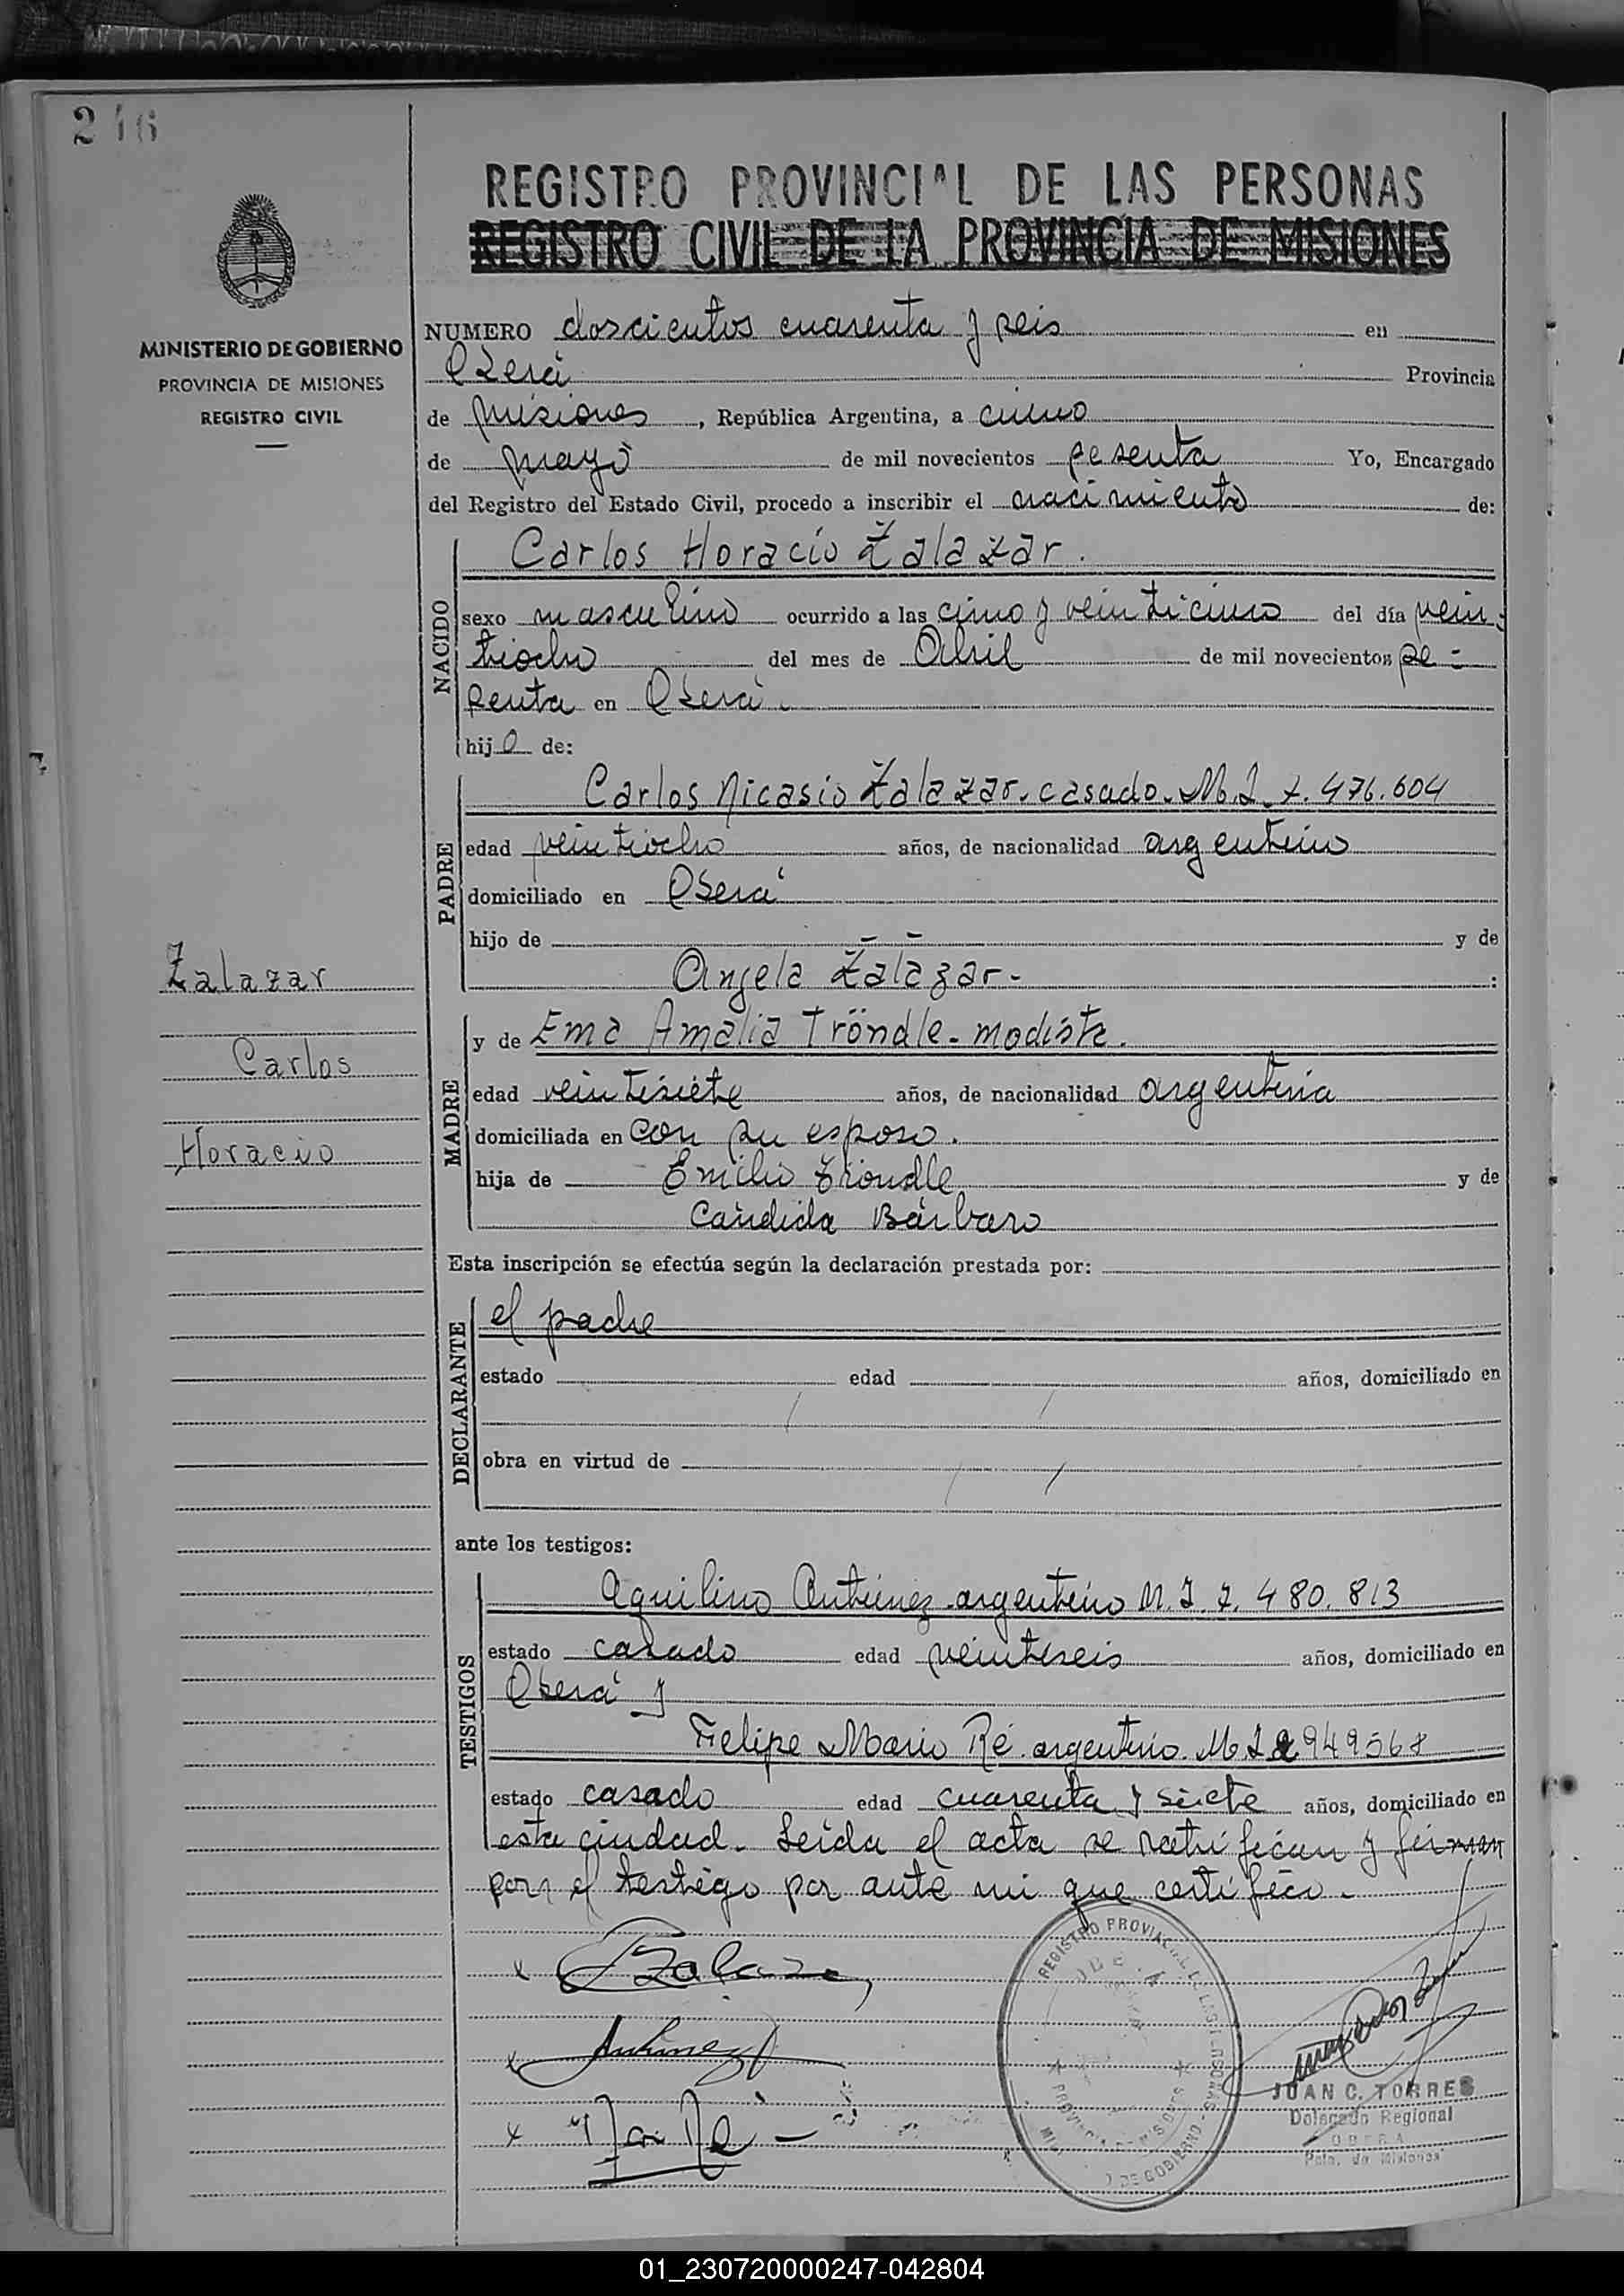 246
REGISTRO PROVINCIAL DE LAS PERSONAS
REGISTRO CIVIL DE LA PROVINCIA DE MISIONES
MINISTERIO DE GOBIERNO
PROVINCIA DE MISIONES
REGISTRO CIVIL
NUMERO doscientos cuarenta y seis en
Oberá Provincia
de Misiones, República Argentina, a cinco
de mayo de mil novecientos sesenta Yo, Encargado
del Registro del Estado Civil, procedo a inscribir el nacimiento de:
NACIDO
Carlos Horacio Zalazar.
sexo masculino ocurrido a las cinco y veinticinco del día vein-
tiocho del mes de Abril de mil novecientos se-
senta en Oberá.
hijo de:
PADRE
Carlos Nicasio Zalazar. casado. M.I. 7.476.604
edad veintiocho años, de nacionalidad argentino
domiciliado en Oberá
hijo de - - y de
Angela Zalazar-
MADRE
y de Ema Amalia Tröndle. modista.
edad veintisiete años, de nacionalidad argentina
domiciliada en con su esposo.
hija de Emilio Tröndle y de
Cándida Bárbaro
Zalazar
Carlos
Horacio
Esta inscripción se efectúa según la declaración prestada por:
DECLARANTE
el padre
estado edad años, domiciliado en
obra en virtud de
ante los testigos:
TESTIGOS
Aquilino Antúnez argentino M.I. 7.480.813
estado casado edad veintiseis años, domiciliado en
Oberá y
Felipe Mario Ré. argentino. M I 2949568
estado casado edad cuarenta y siete años, domiciliado en
esta ciudad. Leída el acta se ratifican y firman
por el testigo por ante mi que certifico.
REGISTRO PROVINCIAL DE LAS PERSONAS
PROVINCIA DE MISIONES
DE GOBIERNO
JUAN C. TORRES
Delegado Regional
OBERA
Pcia. de Misiones
01_230720000247-042804